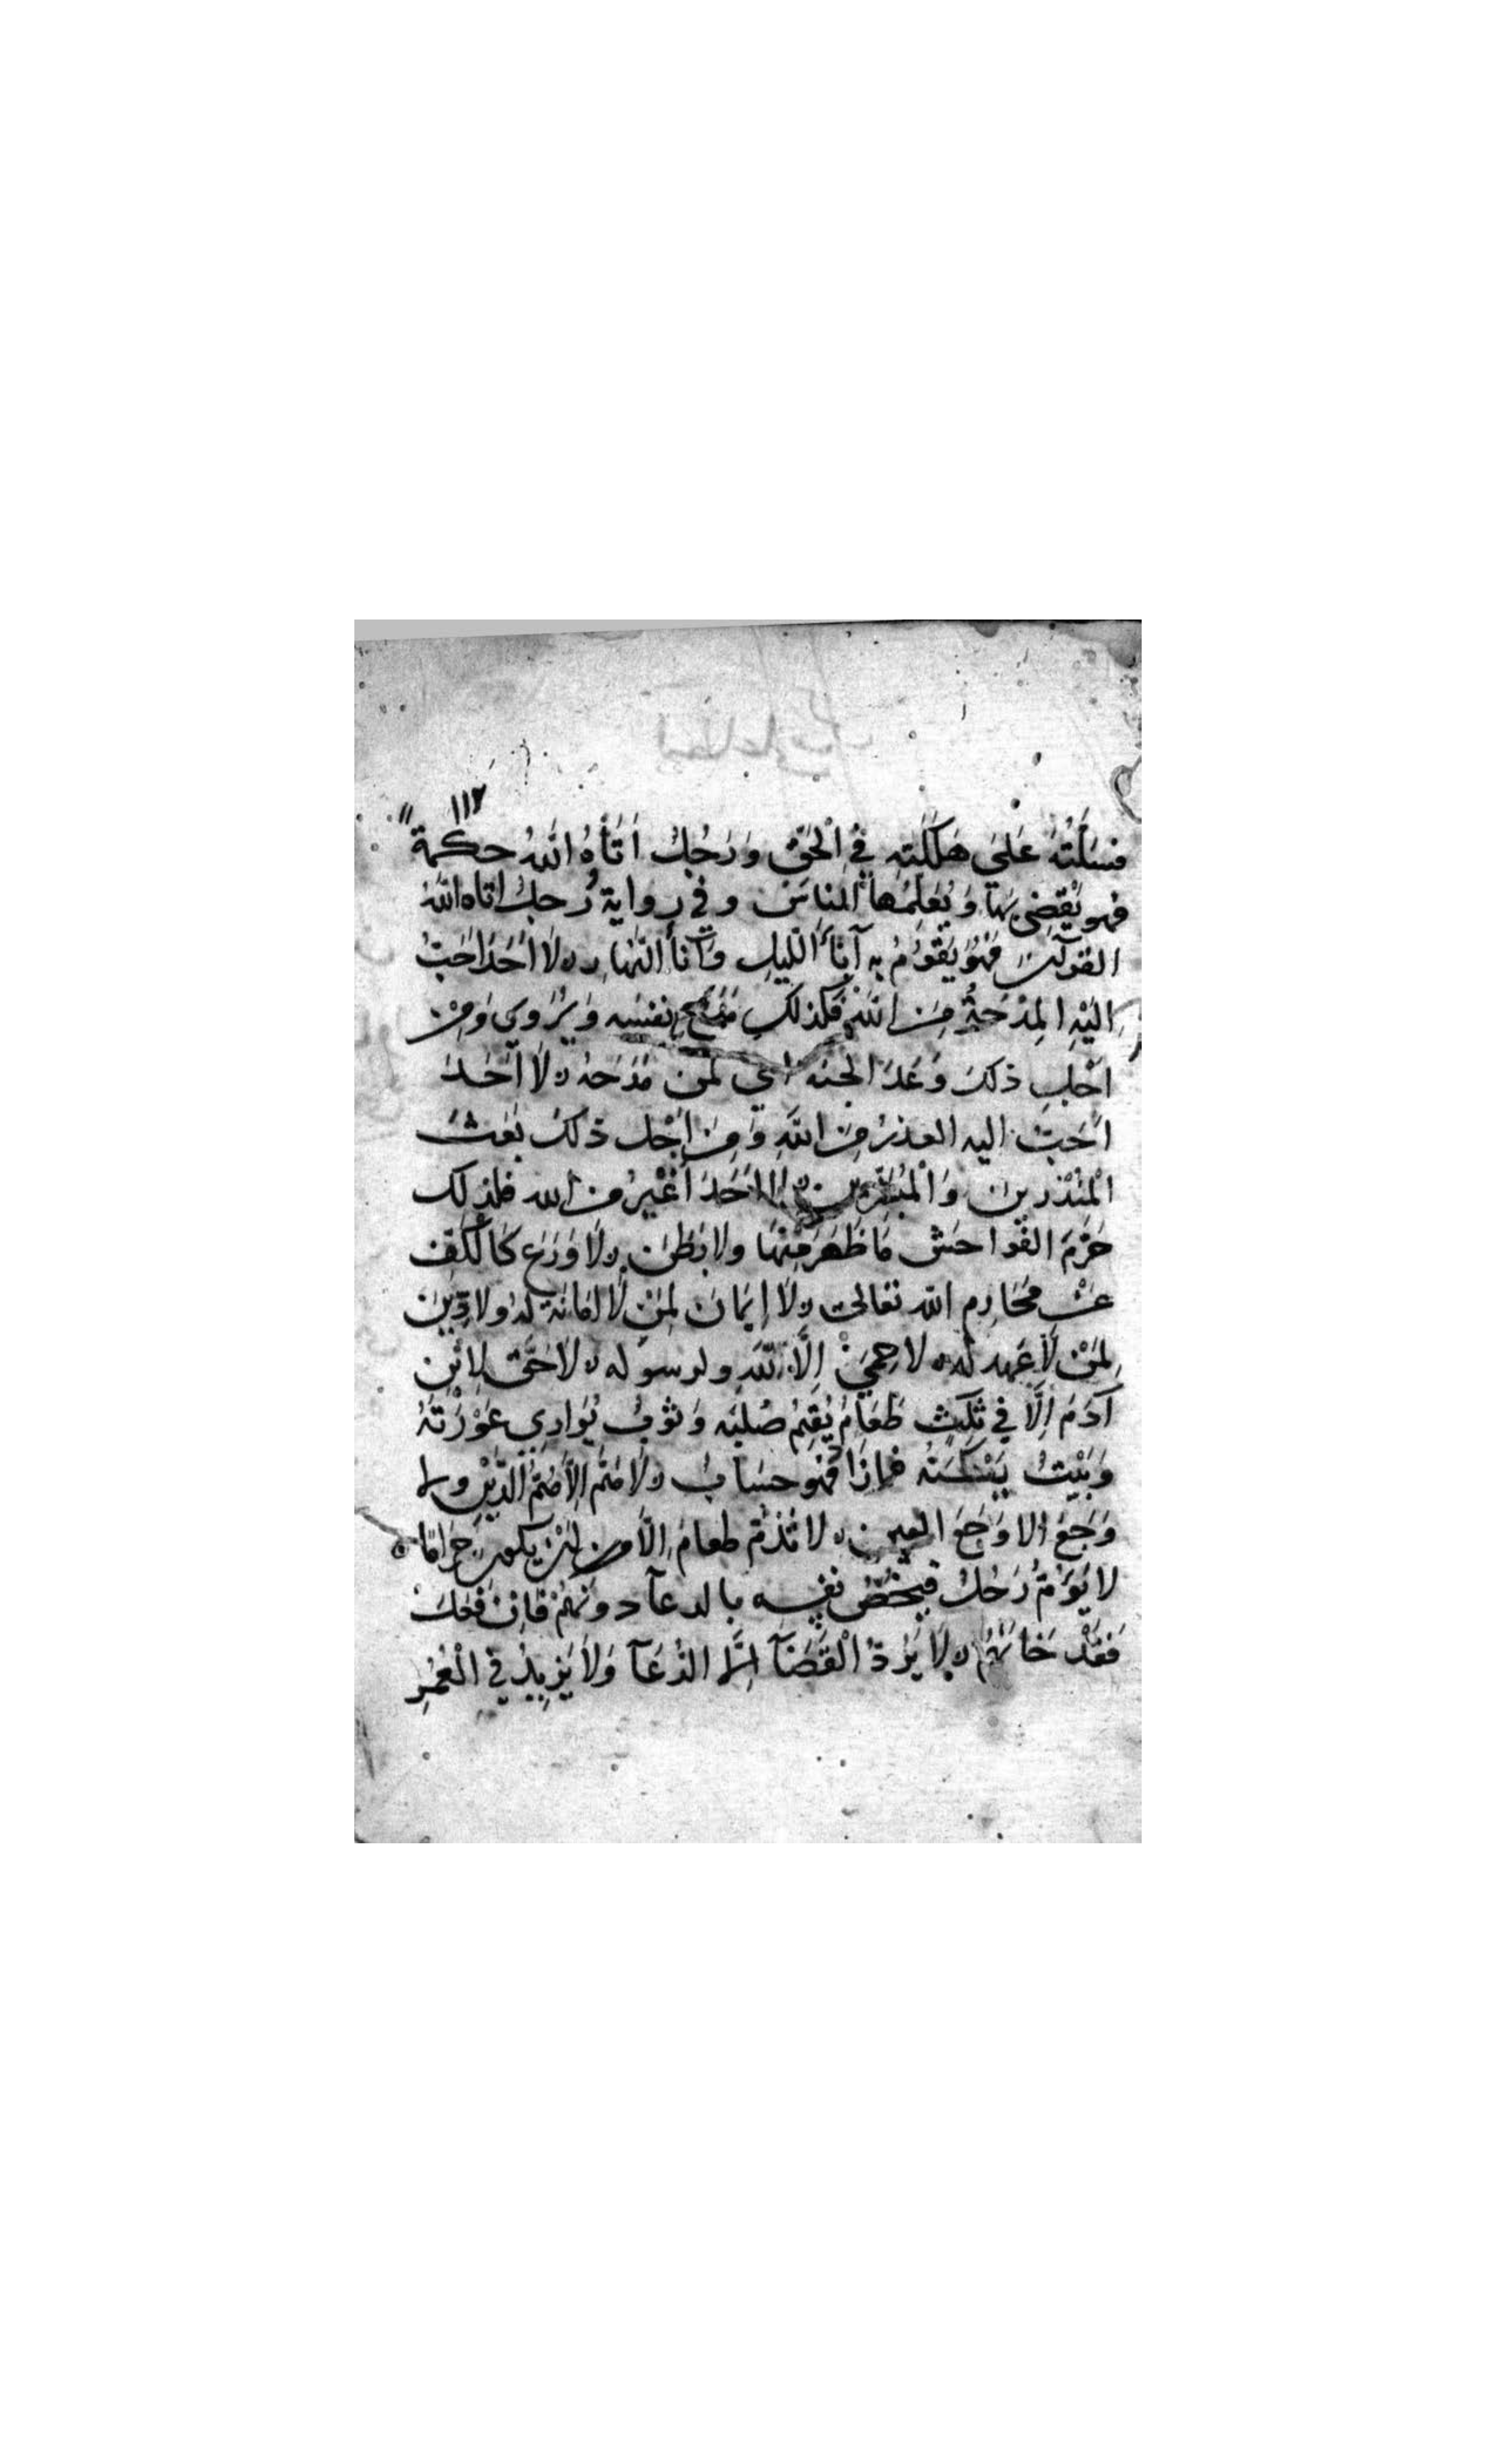 ١١٢
فسَلَّتُهُ عَلىَ هَلَكَتِهِ فِي الْحَقِّ وَرَجُلٌ اَتَاهُ اللهُ حكمة
فهو يَقْضِى بِهَا وَيُعَلِّمُهَا الناسَ وفي رواية رُجلٌ اتاه اللهُ
القرآنَ فَهُوَ يَقُوْمُ بِهِ آنَآءَ اللَّيلِ وَآنآ النَّهارِ لَا اَحَدَ اَحَبُّ
اِلَيْهِ المِدْحَةُ مِنَ اللهِ فَلذلكَ مَدَحَ نفسَه وَيُرْوِى وَمِنْ
اَجْلِ ذلكَ وَعَدَ الجنه اي لمن مَدَحَهُ لَا اَحَدَ
اَحَبُّ اليه العذرُ مِنَ اللهِ وَمِنَ اَجْل ذلكَ بَعَثَ
الْمُنْذِرِينَ وَالْمُبَشِّرِينَ لا اَحَدَ اَغْيَرُ من الله فلذلك
حَرَّمَ الفَوَاحشَ مَا ظَهَرَ مِنْهَا ولا بَطَنَ لَا وَرَعَ كَالْكَفِّ
عَنْ مَحَارِمِ الله تعالى لَا اِيْمَانَ لِمَنْ لَا اَمَانَةَ لهُ ولا دِيْنَ
لِمَنْ لَا عَهدَ لَهُ لا حِمَىَ اِلَّا لِلّهِ ولرسوله لَا حَقَّ لِابْنِ
آدَمَ اِلَّا فِي ثَلَثٍ طَعَامٌ يُقِيْمُ صُلبَه وَثَوْبٌ يُوَارِي عَوْرَتَهُ
وَبَيْتٌ يَسْكُنُهُ فمازَادَ فهو حِسَابٌ لَا هَمَّ اِلَّا هَمُّ الدَّيْنِ ولا
وَجَعَ الا وَجَعَ العين لا تَذُمَّ طعامَ اِلَّا من اَنْ يكونَ حَرَامًا
لا يَؤُمُّ رَجُلٌ فَيَخُصُّ نفسه بالدعآء دونَهُمْ فَاِنْ فَعَلَ
فَقَدْ خَانَهُمْ لَا يَرُدُّ الْقَضَآ اِلَّا الدُّعَآ وَلَا يَزِيدُ في الْعُمُرِ